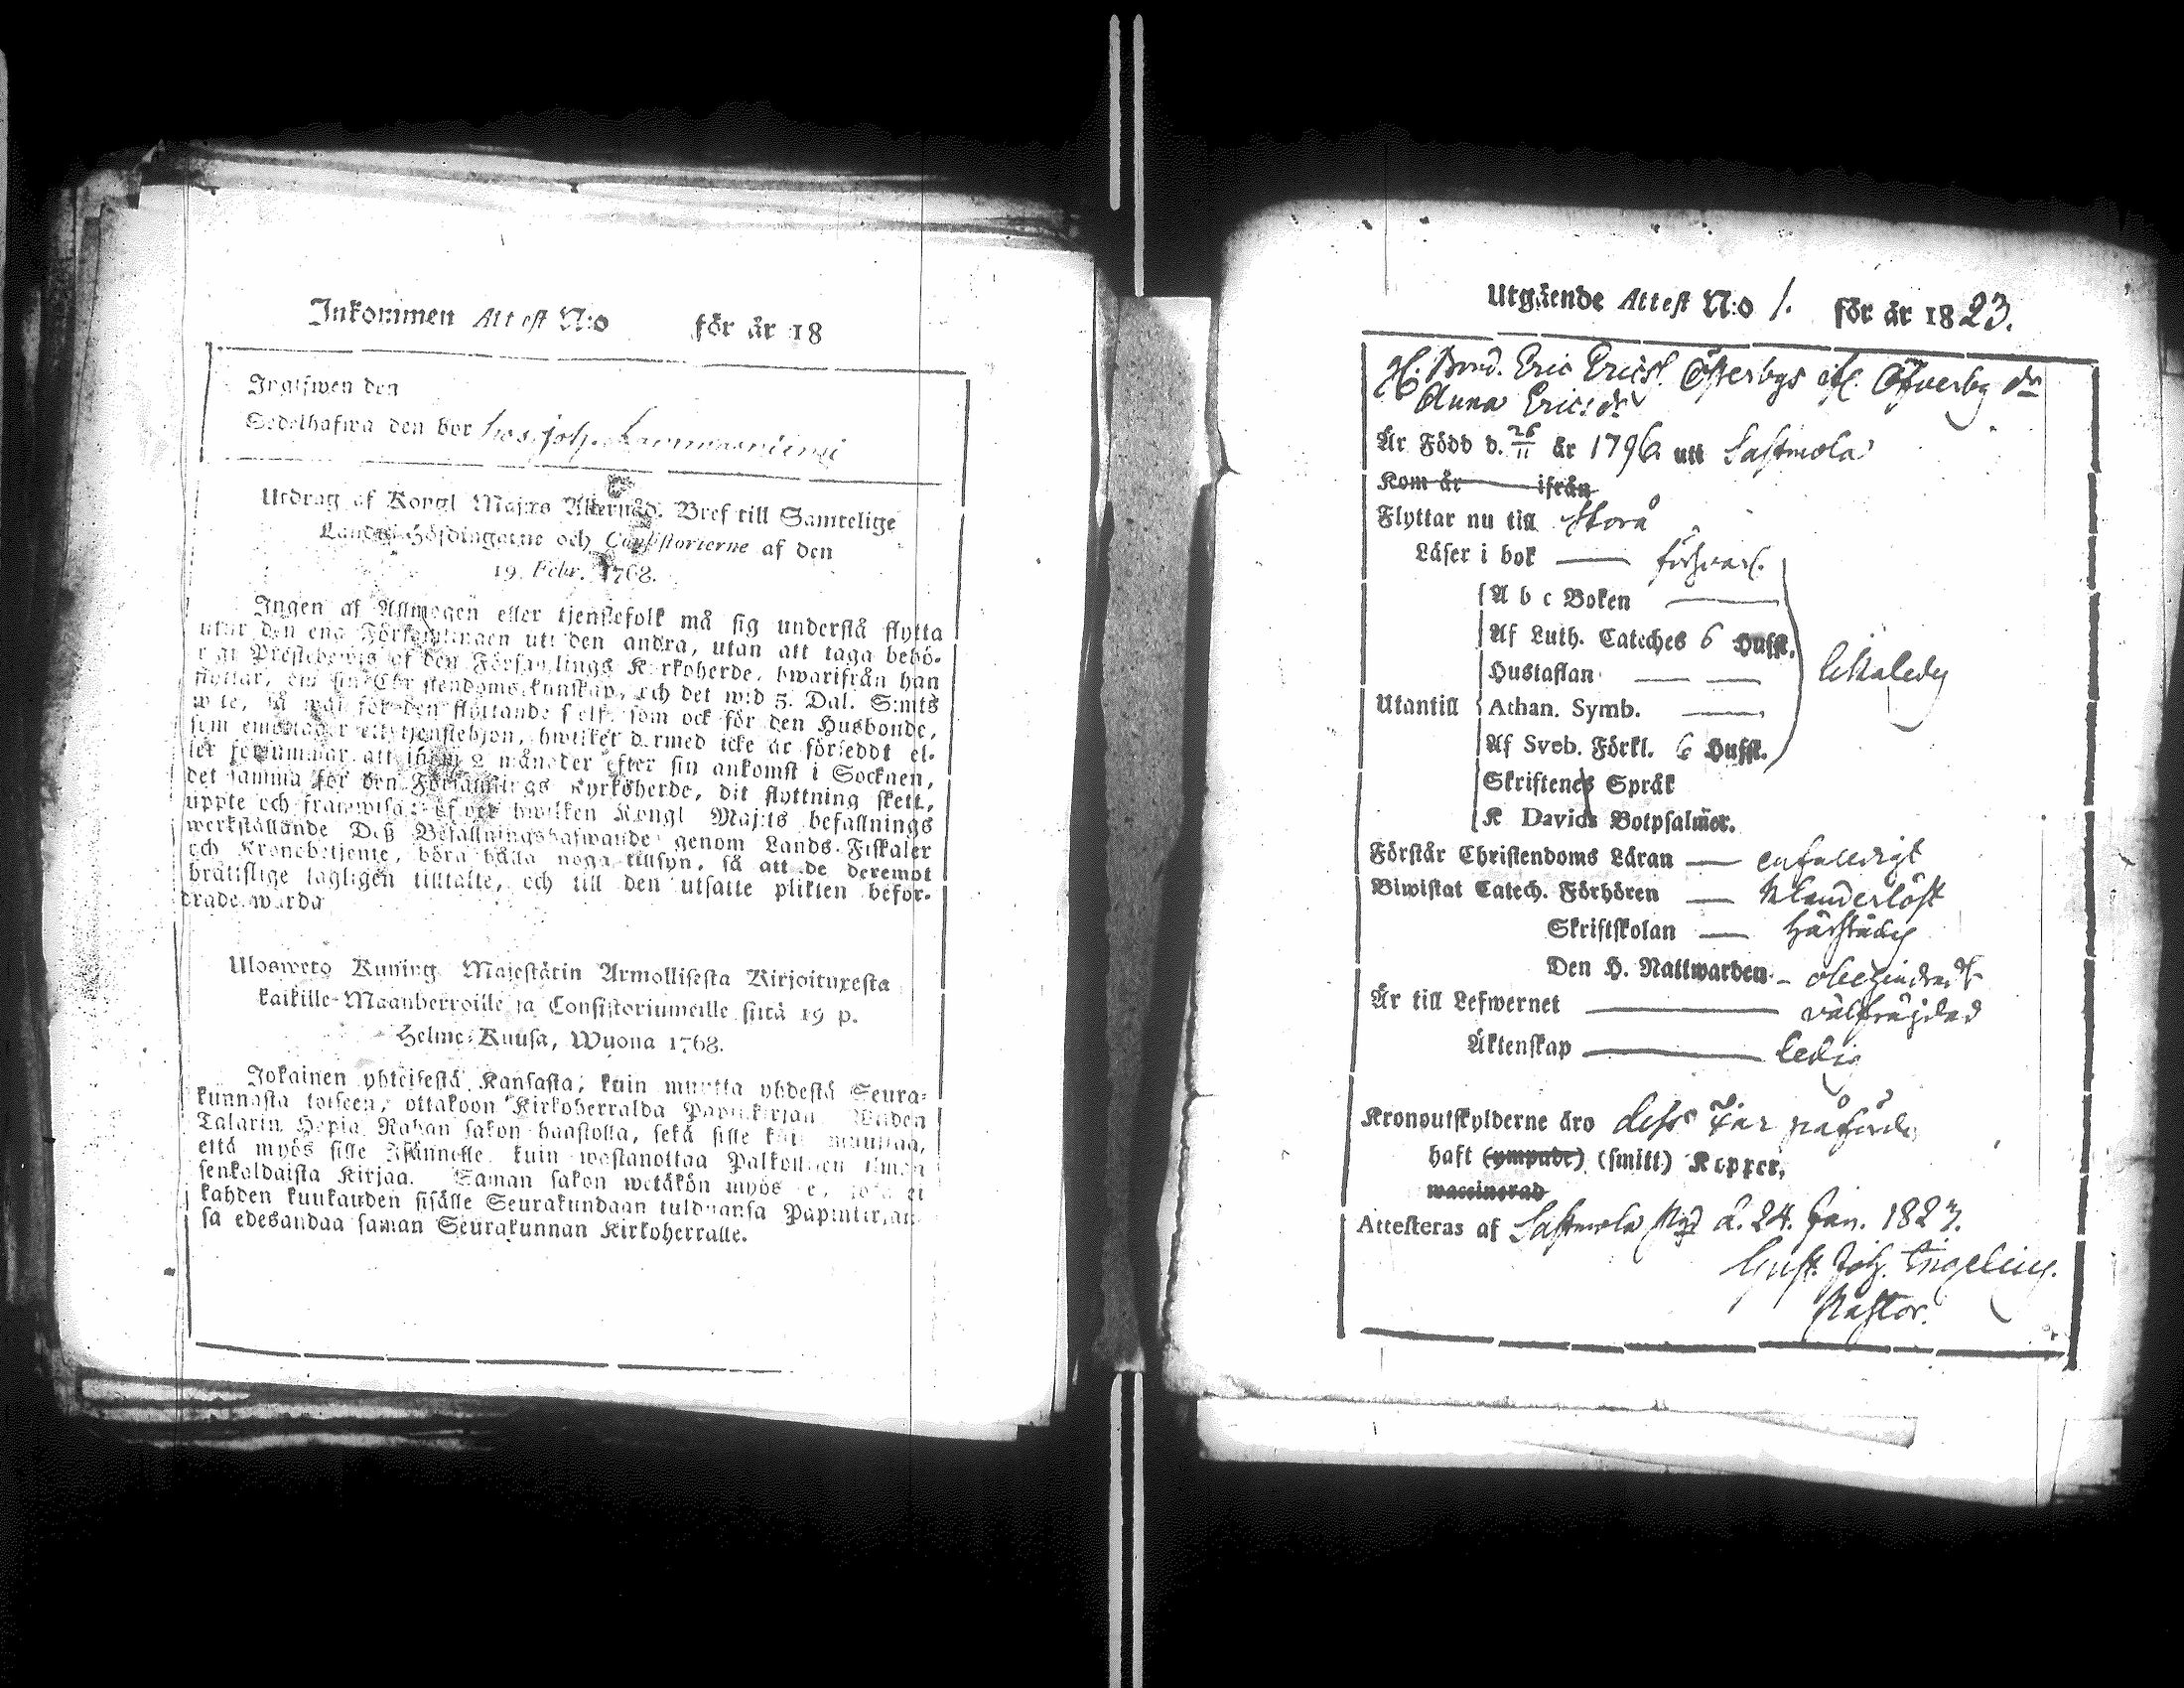 Inkommen Attest N:o för år 18
Ingifwen den
Sedelhafwa den bor hos Joh.
Utdrag af Kongl Maj:ts Allernåd. Bref till Samtelige
Lands-Höfdingarne och Consistorierne af den
19. Febr. 1768.
Ingen af Allmogen eller tjenstefolk må sig understå flytta
utur den ena Församlingen uti den andra, utan att taga behö-
rigt Prestebewis af den Församlings Kyrkoherde, hwarifrån han
flyttar, om sin Christendoms kunskap, och det wid 3. Dal. S:mts
wite, så wäl för den flyttande sielf, som ock för den Husbonde,
som emottager ett tjenstehjon, hwilket dermed icke är försedt el-
ler försummar att inom 2 månader efter sin ankomst i Socknen,
det samma för den Församlings Kyrkoherde, dit flyttning skett,
uppte och framwisa: öfwer hwilken Kongl Maj:ts befallnings
werkställande Deß Befallningshafwande genom Lands-Fiskaler
och Kronobetjente, böra hålla noga tillsyn, så att de deremot
brätslige lagligen tilltalte, och till den utsatte plikten befor-
drade warda
Uloswetö Kuning. Majestätin Armollisesta Kirjoituxesta
kaikille Maanherroille ja Consistoriumeille siitä 19 p.
Helme-Kuusa, Wuona 1768.
Jokainen yhteisestä Kansasta, kuin muutta yhdestä Seura-
kunnasta toiseen, ottakoon Kirkoherralda Papinkirjan Wiiden
Talarin Hopia Rahan sakon haastolla, sekä sille kuin muuttaa,
että myös sille Isännelle, kuin wastanottaa Palkollisen ilman
senkaldaista Kirjaa. Saman sakon wetäkön myös se, joka ei
kahden kuukauden sisälle Seurakundaan tulduansa Papinkirjan-
sa edesandaa saman Seurakunnan Kirkoherralle.
Utgående Attest N:o 1. för år 1823.
Bond. Eric Erics. Österbys Öfverby dr
Anna Ericsdr
Är Född d. 26/11 år 1796 uti Sastmola
Kom år ifrån
Flyttar nu till Storå
Läser i bok — försvarl.
A b c Boken —
Af Luth. Cateches 6 Hufst.
Hustaflan — —
Utantill Athan. Symb. —
Af Sveb. Förkl. 6 Hufst.
Skriftenes Språk
K Davids Botpsalmer.
Förstår Christendoms Läran — enfaldigt
Biwistat Catech. Förhören — klanderlöst
Skriftskolan — härstädes
Den H. Nattwarden — obehindradt
Är till Lefwernet — välfräjdad
Äktenskap — ledig
Kronoutskylderne äro dess Far påförde
haft (ympade) (smitt) Koppor,
waccinerad
Attesteras af Sastmola Pgd d. 24. Jan. 1823.
Gust. Joh. Engelius.
Pastor.